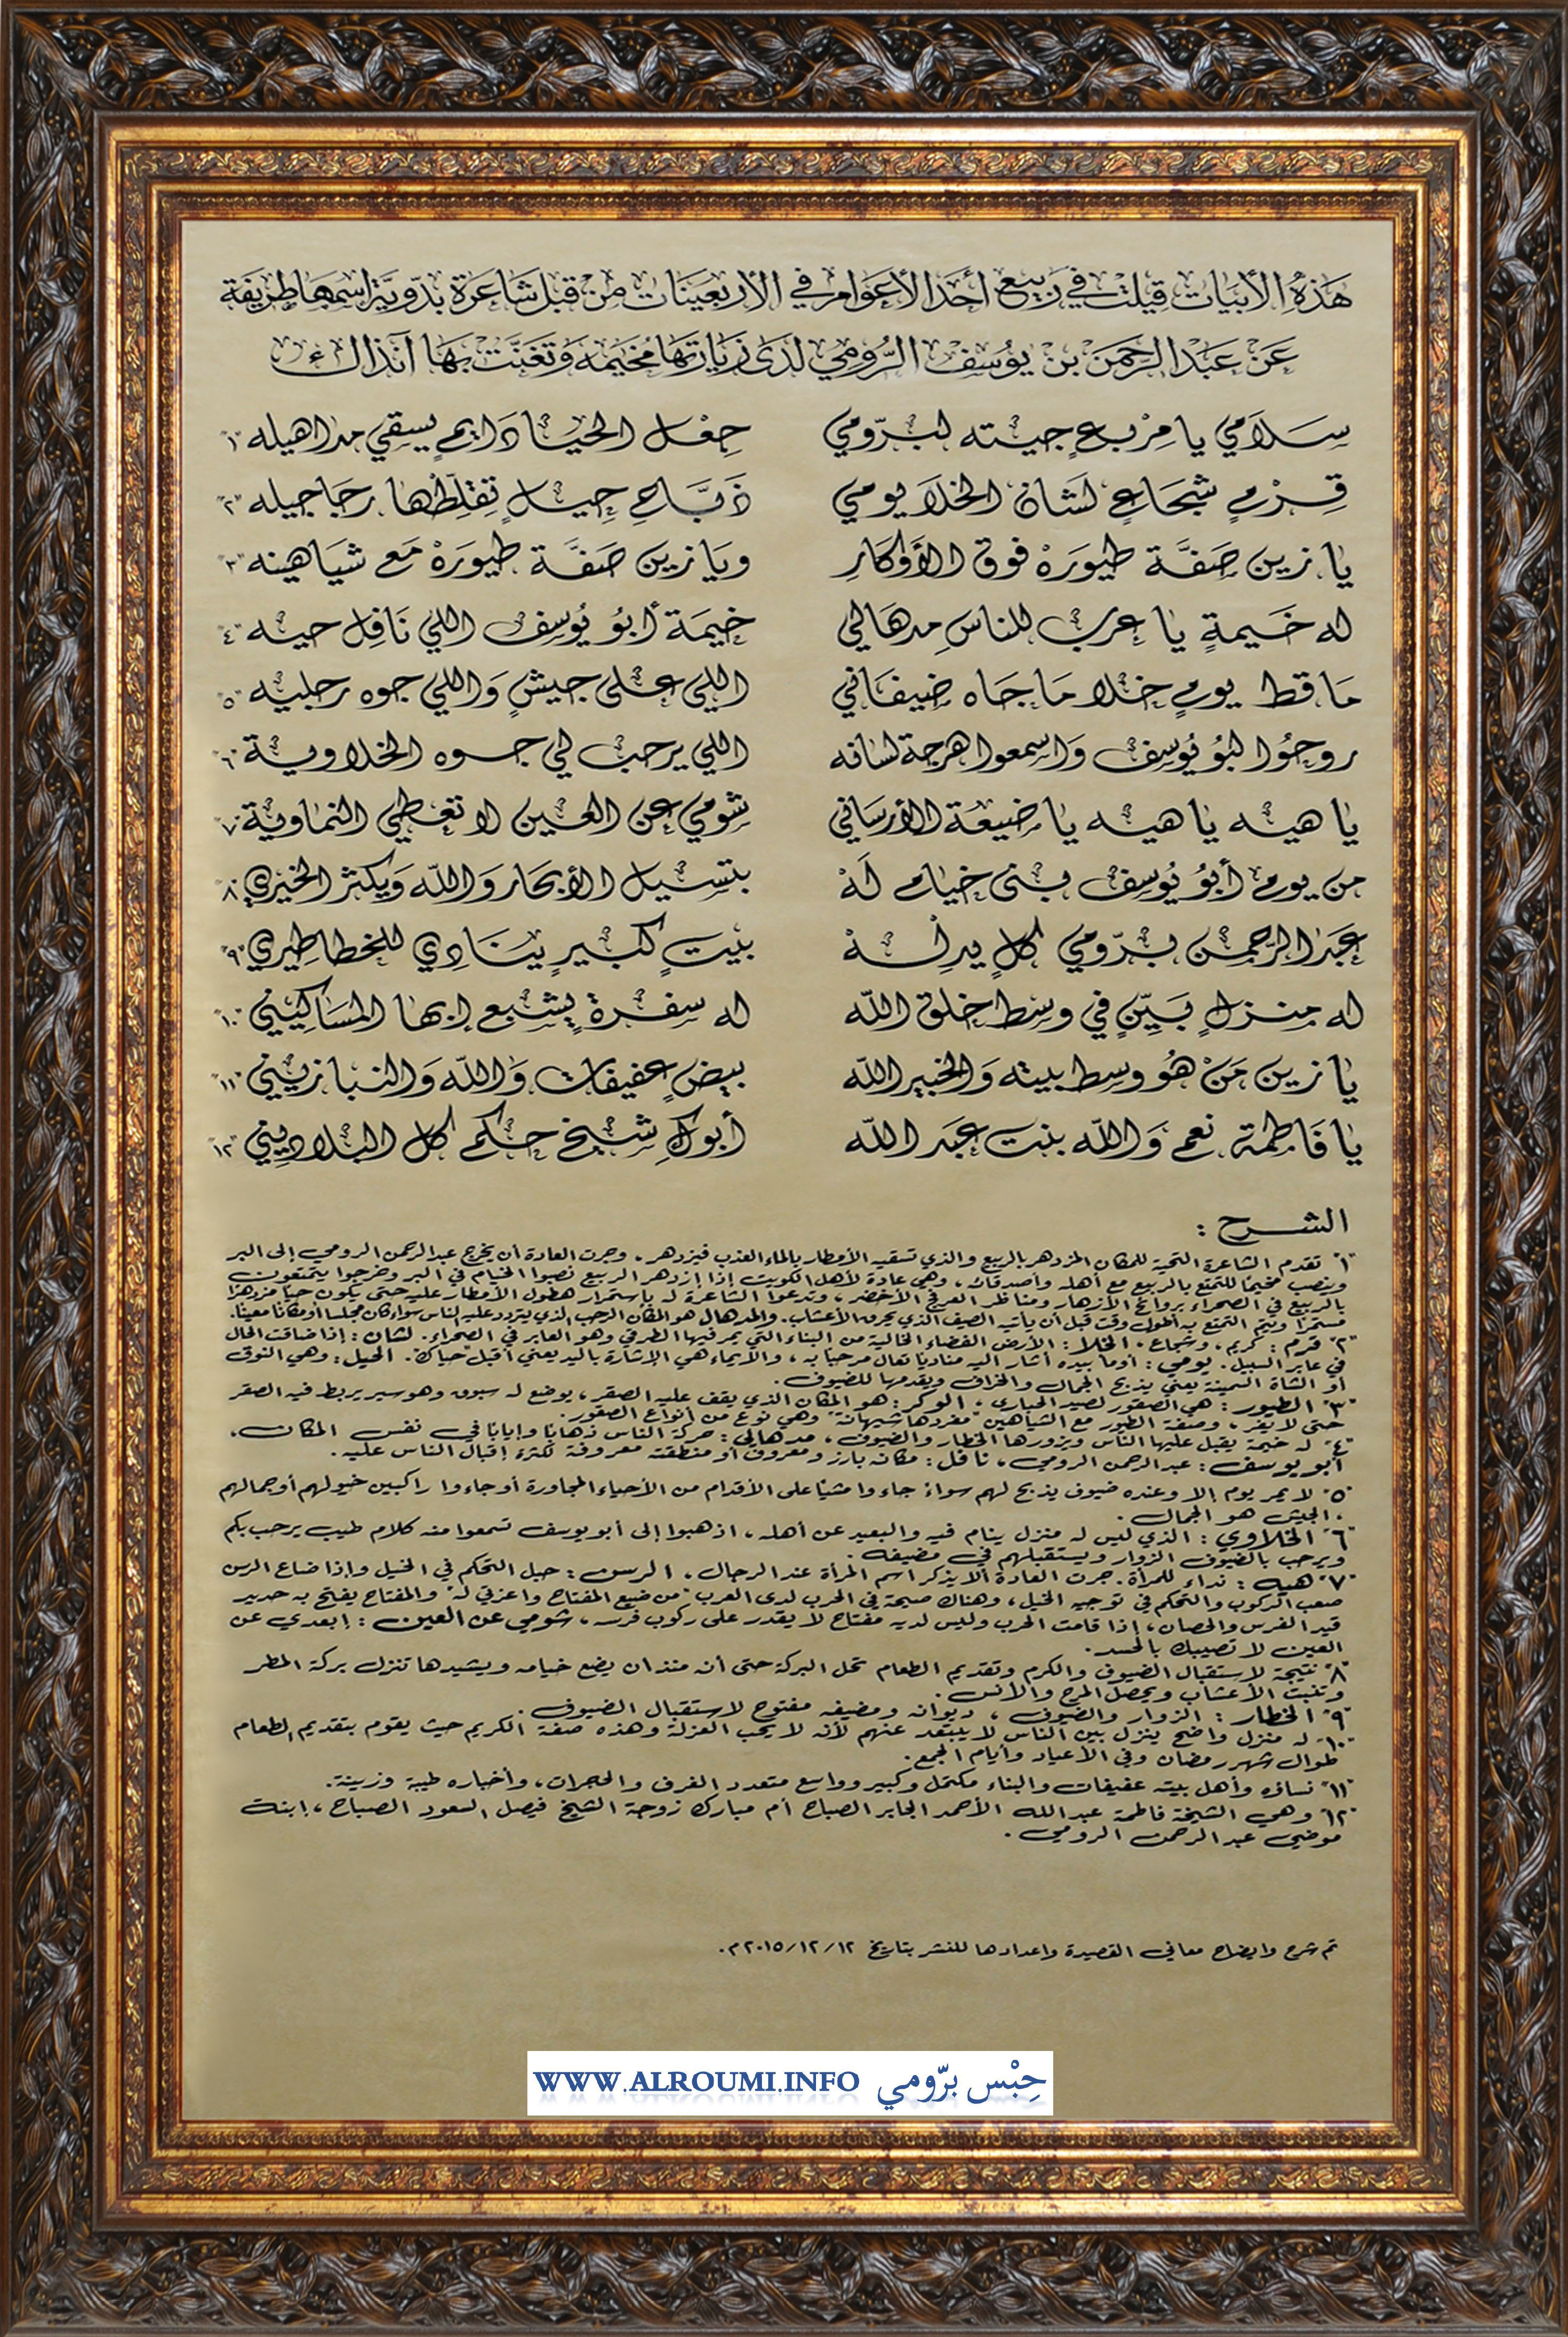 هَذِهِ الأَبْيَات قِيلَت في رَبِيع أَحَد الأَعْوَام في الأَرْبَعِينَات مِنْ قبَل شَاعِرَة بَدَوِيَّة اسْمهَا طريفَة
عَنْ عَبْد الرَّحمَن بن يُوسُف الرُّومي لَدَى زيَارَتهَا مُخيمَه وَتَغَنَّت بهَا آنَذَاك
سَلَامي يا مِرْبعٍ جيته لبرّومي جعْل الحيَا دَايمٍ يسقِي مداهيله "١"
قِرْمٍ شجَاعٍ لَشَان الخلَا يومي ذَبَّاحِ حِيلٍ تقلِّطْها رجَاجيله "٢"
يا زين صَفَّة طيورَهْ فوق الأَوكَارِ ويَا زين صَفَّة طيورَهْ مَع شيَاهينه "٣"
له خَيمةٍ يا عرب للناس مدهَالي خيمَة أبُو يُوسف اللي نَافِل حيه "٤"
مَا قط يومٍ خلا مَا جَاه ضيفَاني اللي على جيشٍ وَاللي جوه رجليه "٥"
روحُوا لبُو يُوسف وَاسمعوا هرجة لسانه اللي يرحب لي جوه الخلاوية "٦"
يا هيه يا هيه يا ضيعة الأرسَاني شومي عن العين لا تعطي النماوية "٧"
من يوم أبُو يُوسف بنى خيام لَهْ بتسيل الأبحار وَالله وَيكثر الخيري "٨"
عَبد الرَّحمن برّومي كلٍ يدلهْ بيتٍ كبيرٍ ينَادِي للخطاطِيري "٩"
له منزلٍ بَيِّنٍ في وسط خلق الله له سفرةٍ يشبع ابها المسَاكيني "١٠"
يا زين مَنْ هُو وسط بيته وَالخبير الله بيضٍ عفيفات وَالله وَالنبا زيني "١١"
يا فَاطمة نعم وَالله بنت عبَد الله أبوكِ شيخ حكم كل البلادِيني "١٢"
الشرح :
"١" تقدم الشاعرة التحية للمكان المزدهر بالربيع والذي تسقيه الأمطار بالماء العذب فيزدهر، وجرت العادة أن يخرج عبدالرحمن الرومي إلى البر
وينصب مخيمًا للتمتع بالربيع مع أهله وأصدقائه، وهي عادة لأهل الكويت إذا ازدهر الربيع نصبوا الخيام في البر وخرجوا يتمتعون
بالربيع في الصحراء بروائح الأزهار ومناظر العرفج الأخضر، وتدعوا الشاعرة له بإستمرار هطول الأمطار عليه حتى يكون حياً مزدهرًا
مستمرًا ويتم التمتع به أطول وقت قبل أن يأتيه الصيف الذي يحرق الأعشاب. والمدهال هو المكان الرحب الذي يتردد عليه الناس سواء كان مجلسا أو مكانًا معينًا.
"٢" قرم : كريم، وشجاع. الخلا : الأرض الفضاء الخالية من البناء التي يمر فيها الطرقي وهو العابر في الصحراء. لشان : إذا ضاقت الحال
في عابر السبيل. يومي : أومأ بيده أشار اليه مناديا تعال مرحبا به، والإيماء هي الإشارة باليد يعني أقبل "حياك". الحيل : وهي النوق
أو الشاة السمينة يعني يذبح الجمال والخراف ويقدمها للضيوف.
"٣" الطيور : هي الصقور لصيد الحبارى، الوكر : هو المكان الذي يقف عليه الصقر، يوضع له سبوق وهو سير يربط فيه الصقر
حتى لا يفر، وصفة الطيور مع الشياهين "مفردها شيهانة" وهي نوع من أنواع الصقور.
"٤" له خيمة يقبل عليها الناس ويزورها الخطار والضيوف، مدهالي : حركة الناس ذهابًا وإيابًا في نفس المكان،
أبو يوسف : عبدالرحمن الرومي، نافل : مكانه بارز ومعروف أو منطقته معروفة لكثرة إقبال الناس عليه.
"٥" لا يمر يوم إلا وعنده ضيوف يذبح لهم سواءً جاءوا مشيًا على الأقدام من الأحياء المجاورة أو جاءوا راكبين خيولهم أو جمالهم
. الجيش هو الجمال.
"٦" الخلاوي : الذي ليس له منزل ينام فيه والبعيد عن أهله، اذهبوا إلى أبو يوسف تسمعوا منه كلام طيب يرحب بكم
ويرحب بالضيوف الزوار ويستقبلهم في مضيفه.
"٧" هيه : نداء للمرأة. جرت العادة ألا يذكر اسم المرأة عند الرجال، الرسن : حبل التحكم في الخيل وإذا ضاع الرسن
صعب الركوب والتحكم في توجيه الخيل، وهناك صيحة في الحرب لدى العرب "من ضيع المفتاح واعزتي له" والمفتاح يفتح به حديد
قيد الفرس والحصان، إذا قامت الحرب وليس لديه مفتاح لا يقدر على ركوب فرسه، شومي عن العين : إبعدي عن
العين لا تصيبك بالحسد.
"٨" نتيجة لاستقبال الضيوف والكرم وتقديم الطعام تحل البركة حتى أنه منذ ان يضع خيامه ويشيدها تنزل بركة المطر
وتنبت الأعشاب ويحصل المرح والأنس.
"٩" الخطار : الزوار والضيوف، ديوانه ومضيفه مفتوح لاستقبال الضيوف.
"١٠" له منزل واضح ينزل بين الناس لا يبتعد عنهم لأنه لا يحب العزلة وهذه صفة الكريم حيث يقوم بتقديم الطعام
طوال شهر رمضان وفي الأعياد وأيام الجمع.
"١١" نساؤه وأهل بيته عفيفات والبناء مكتمل وكبير وواسع متعدد الغرف والحجرات، وأخباره طيبة وزينة.
"١٢" وهي الشيخة فاطمة عبدالله الأحمد الجابر الصباح أم مبارك زوجة الشيخ فيصل السعود الصباح، إبنة
موضي عبدالرحمن الرومي.
تم شرح وايضاح معاني القصيدة واعدادها للنشر بتاريخ ١٢/١٢/٢٠١٥م.
WWW.ALROUMI.INFO حِبْس برّومي